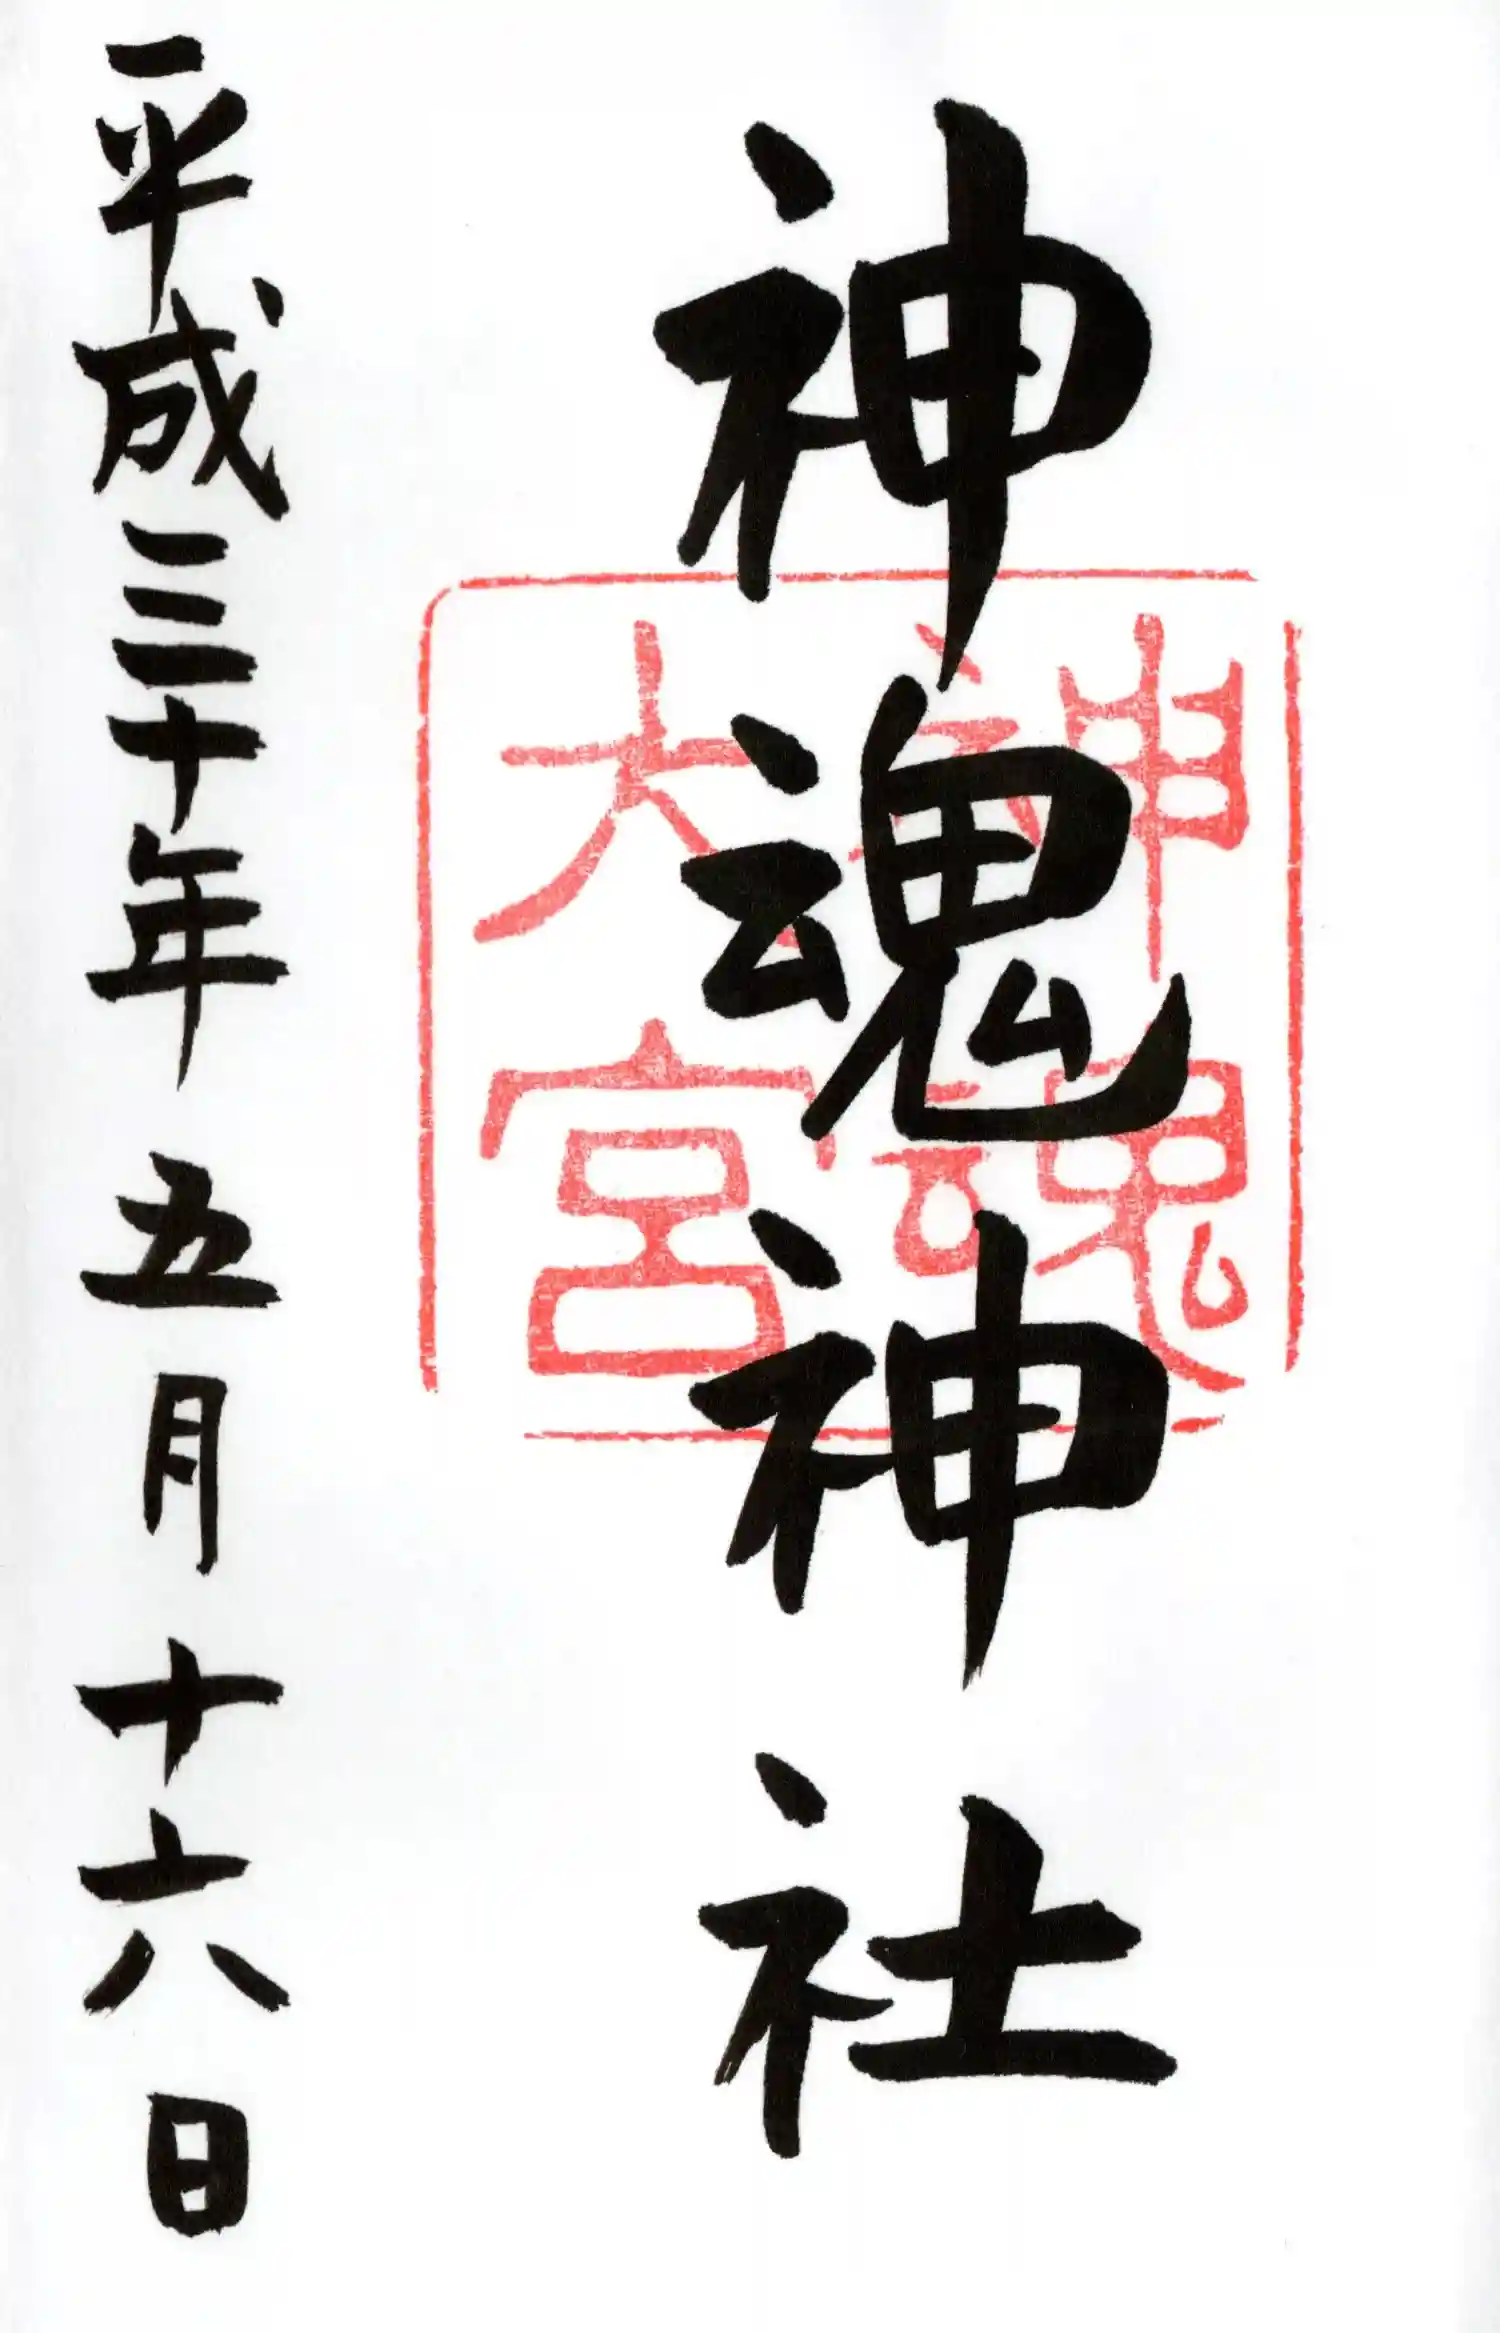 神魂神社
神魂
大宮
平成三十年 五月 十六日